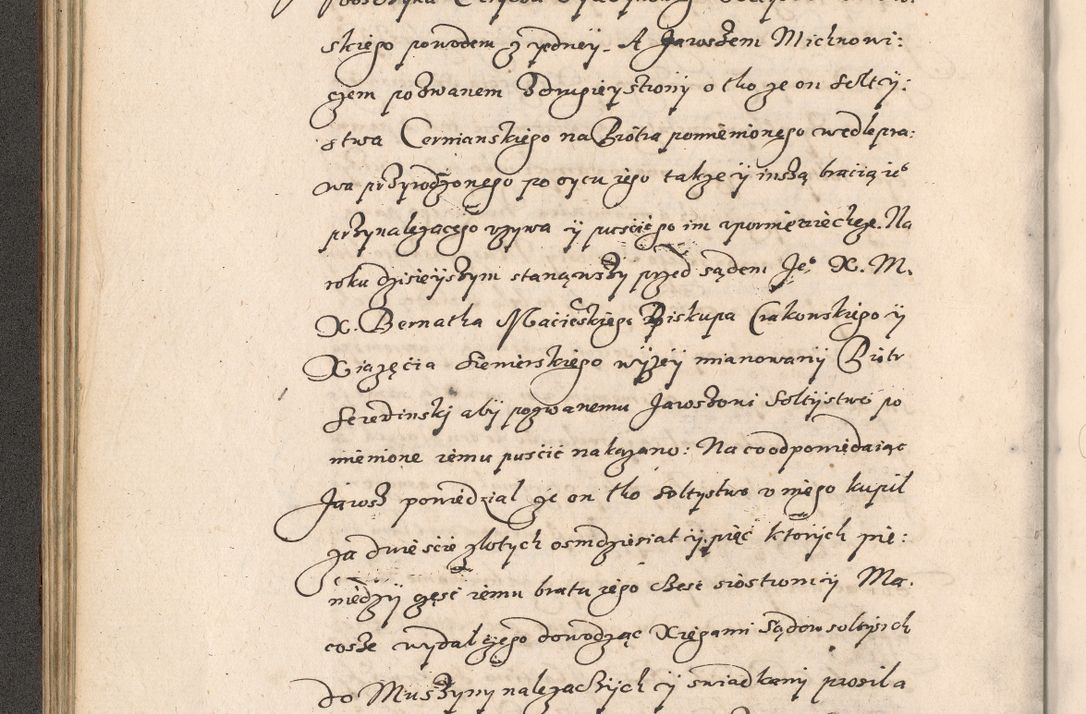 skiego powodem z yedney. A Jaroszem Michnowi:
czem pozwanem z drugiey strony o tho ze on soltcy:
stwa Cernianskiego na Piotra pomienionego wedle pra:
wa przyrodzonego po oycu iego takze y inszą bracią ie°
przynalezącego vzywa y puscić go im vporniewiechcze. Na
roku dzisieyszym stanąwszy przed sądem Je° X. M.
X. Bernatha Macieiskiego Biskupa Crakowskiego y
Xiązęcia Siewierskiego wyzey mianowany Piotr
Seredinski aby pozwanemu Jaroszowi Soltystwo po
mienione iemu puscić nakazano: Na co odpowiedaiąc
Jarosz powiedzial ze on tho soltystwo v niego kupil
za dwiescie zlotych osmdziesiat y pięć ktorych pie:
niedzy część iemu bratu iego siostrom y Ma:
cosze wydal czego dowodząc Xięgami Sądow soltysich
do Muszyny nalezaczych y swiadkami prosil a